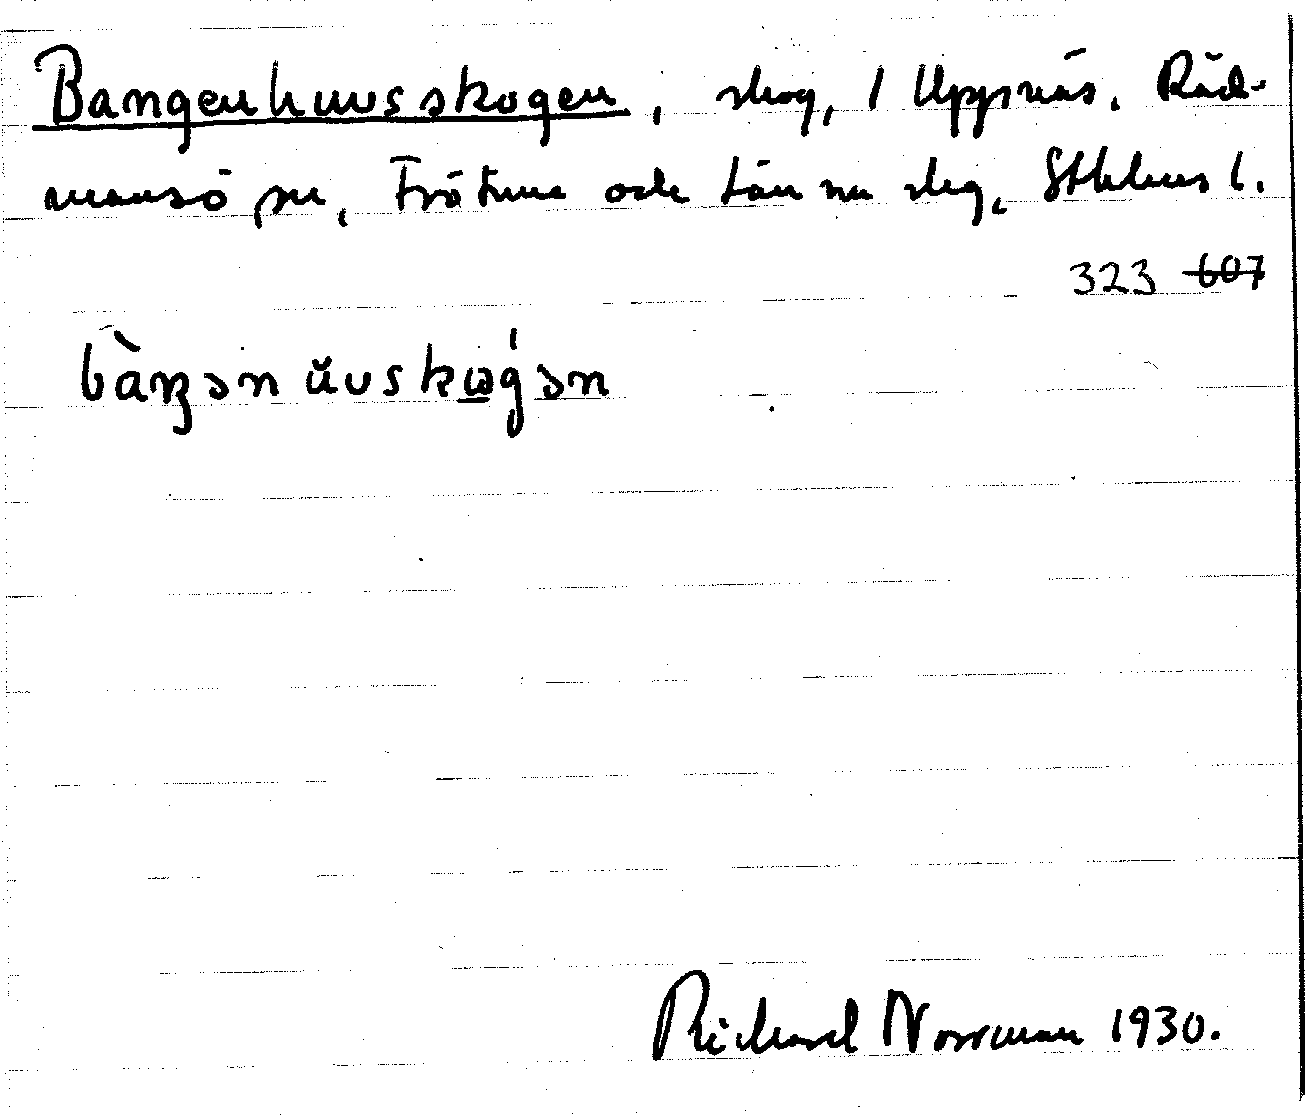 Bangenhuvsskogen, skog, 1 Uppnäs. Råd-
mansö sn, Frötuna och Länna skg, Sthlms l.
323 607
bàŋən ŭvskɷg'ən
Richard Norrman 1930.